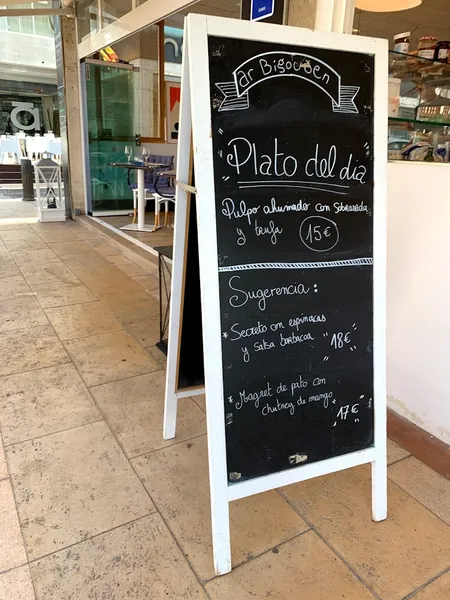 ar Bigouden
Plato del día
Pulpo ahumado con sobrasada
y trufa 15€
Sugerencia:
Secreto con espinacas
y salsa barbacoa 18€
Magret de pato con
chutney de mango 17€
a